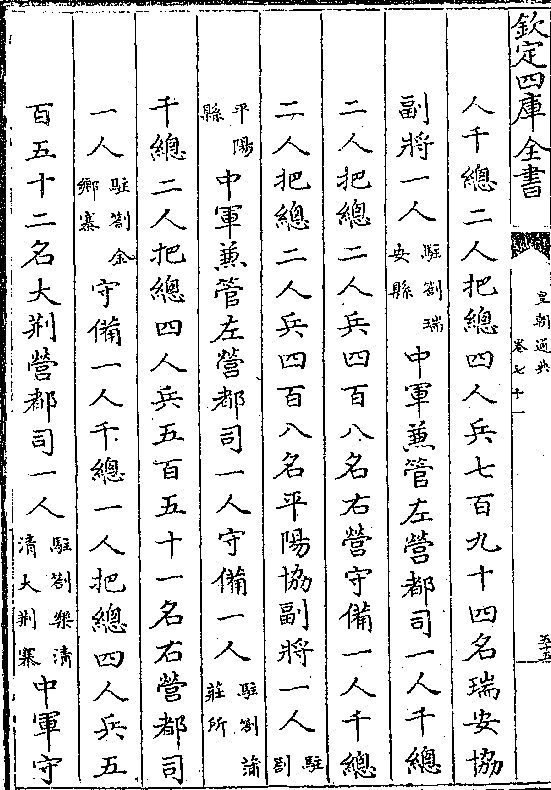 欽定四庫全書
皇朝通典
卷七十一
五十五
人千總二人把總四人兵七百九十四名瑞安協
副將一人駐劄瑞安縣中軍兼管左營都司一人千總
二人把總二人兵四百八名右營守備一人千總
二人把總二人兵四百八名平陽協副將一人駐劄
平陽縣中軍兼管左營都司一人守備一人駐劄蒲莊所
千總二人把總四人兵五百五十一名右營都司
一人駐劄金鄉寨守備一人千總一人把總四人兵五
百五十二名大荆營都司一人駐劄樂清清大荆寨中軍守